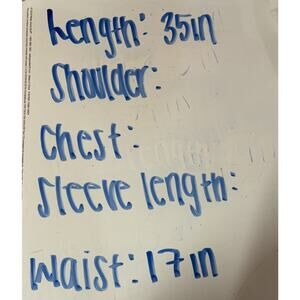 Length: 35in
Shoulder:
Chest:
Sleeve length:
Waist: 17in